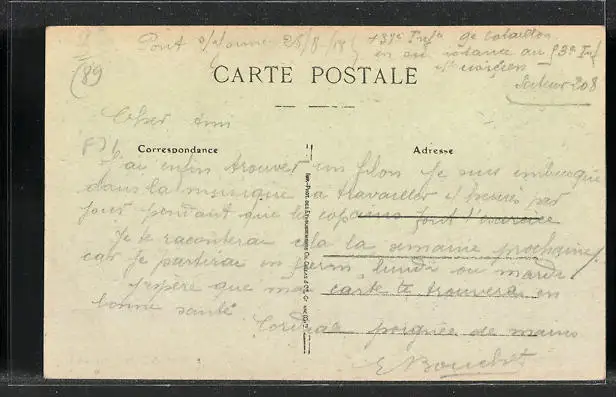 Pont s/Yonne 28/8/19
139e Infie de bataillon
en au 53e Inf
musicien
Secteur 208
CARTE POSTALE
(89)
Cher ami
Correspondance
Adresse
J'ai enfin trouver un filon je suis embusqué
dans la musique a travailler 4 heures par
jour pendant que les copains font l'exercice
Je te raconterai cela la semaine prochaine
car je partirai en perm lundi ou mardi
J'espère que ma carte te trouvera en
bonne santé
Cordiale poignée de mains
E Bouchet